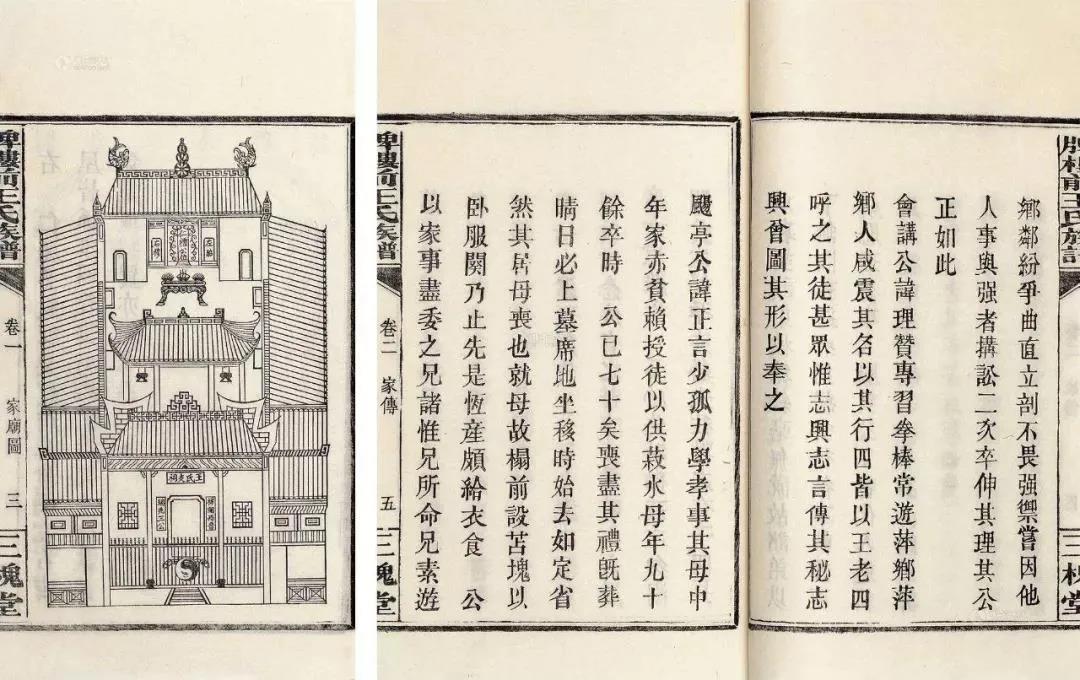 牌樓前王氏族譜
三槐堂
鄉鄰紛爭曲直立剖不畏强禦嘗因他
人事與强者搆訟二次卒伸其理其公
正如此
會講公諱理贊專習拳棒常遊萍鄉萍
鄉人咸震其名以其行四皆以王老四
呼之其徒甚眾惟志興志言傳其秘志
興曾圖其形以奉之
颺亭公諱正言少孤力學孝事其母中
年家亦貧賴授徒以供菽水母年九十
餘卒時公已七十矣喪盡其禮旣葬
晴日必上墓席地坐移時始去如定省
然其居母喪也就母故榻前設苫塊以
卧服闋乃止先是恆産頗給衣食 公
以家事盡委之兄諸惟兄所命兄素遊
牌樓前王氏族譜
卷二
家傳
五
三槐堂
左昭
右穆
牌樓前王氏族譜
卷一
家廟圖
三
三槐堂